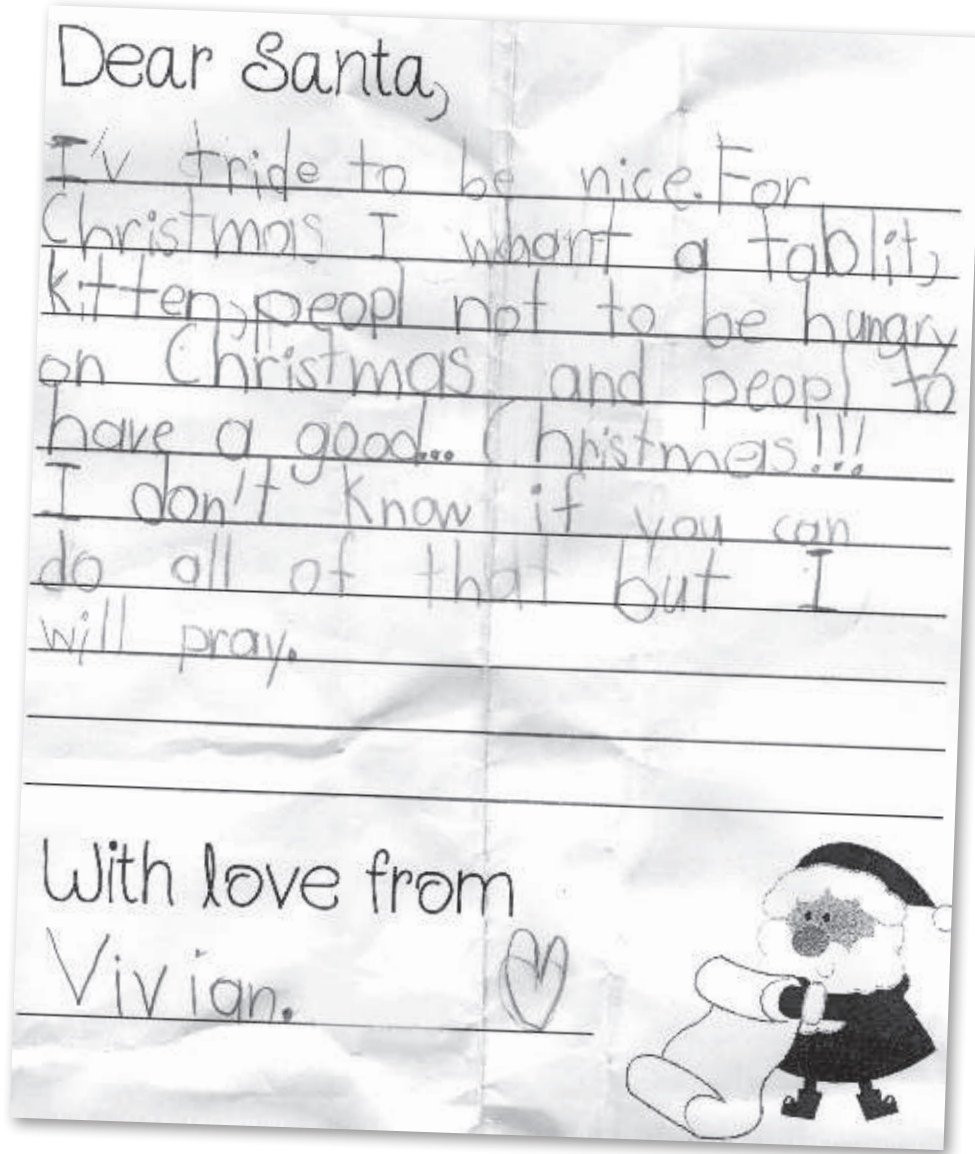 Dear Santa,
I'v tride to be nice. For
Christmas I whant a tablit,
kitten, peopl not to be hungry
on Christmas and peopl to
have a good... Christmas!!!
I don't know if you can
do all of that but I
will pray.
With love from
Vivian.